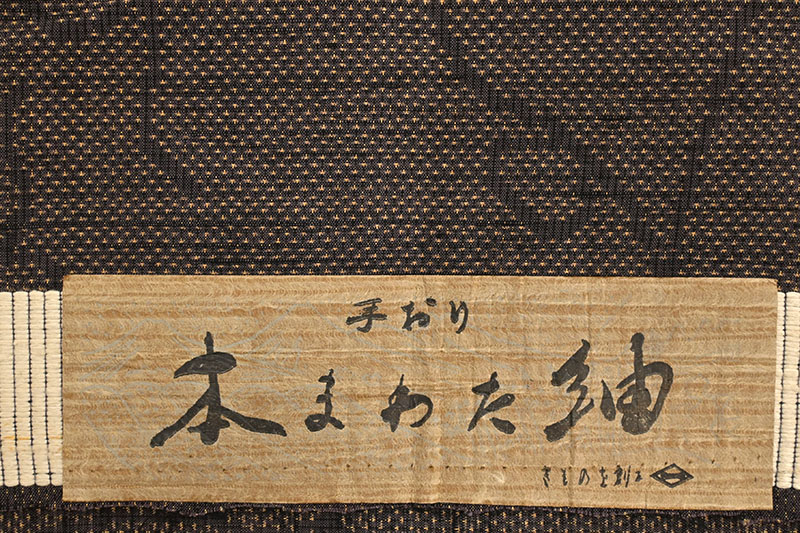 手おり
本まわた紬
きものを創る